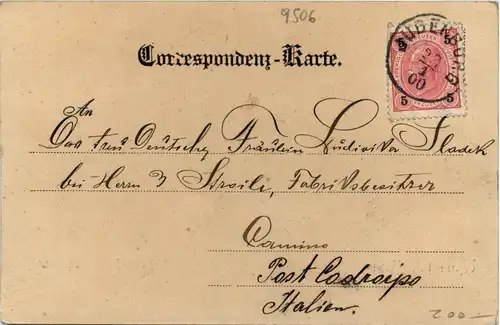 9506
Correspondenz-Karte.
5 5
5 5
JUDENBURG
23
1
00
An
Das treu Deutsche Fräulein Ludivika Sladek
bei Herrn J Stroile, Fabriksbesitzer
Camino
Post Codroipo
Italien.
200—